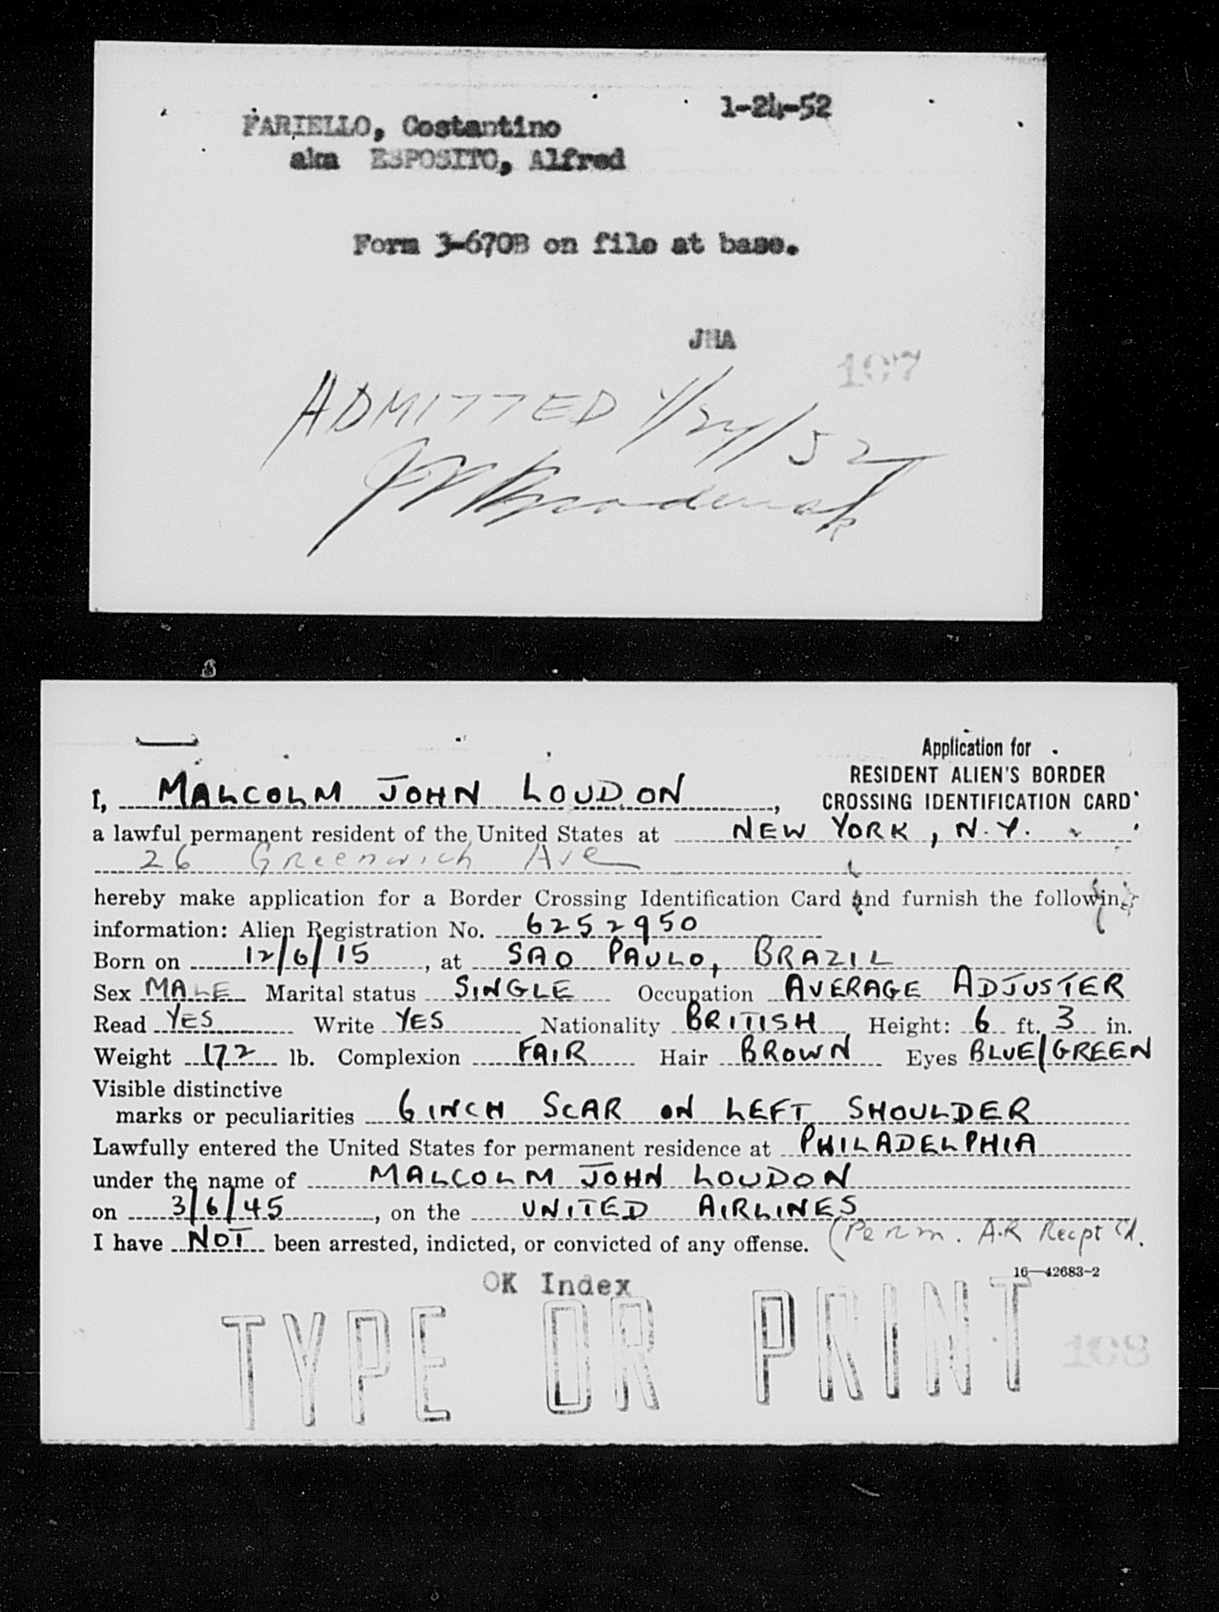 1-24-52
FARIELLO, Costantino
aka ESPOSITO, Alfred
Form 3-670B on file at base.
JHA
107
ADMITTED 1/24/52
Application for
RESIDENT ALIEN'S BORDER
CROSSING IDENTIFICATION CARD
I, MALCOLM JOHN LOUDON,
a lawful permanent resident of the United States at NEW YORK, N.Y.
26 Greenwich Ave
hereby make application for a Border Crossing Identification Card and furnish the following
information: Alien Registration No. 6252950
Born on 12/6/15, at SAO PAULO, BRAZIL
Sex MALE Marital status SINGLE Occupation AVERAGE ADJUSTER
Read YES Write YES Nationality BRITISH Height: 6 ft. 3 in.
Weight 172 lb. Complexion FAIR Hair BROWN Eyes BLUE/GREEN
Visible distinctive
marks or peculiarities 6 INCH SCAR ON LEFT SHOULDER
Lawfully entered the United States for permanent residence at PHILADELPHIA
under the name of MALCOLM JOHN LOUDON
on 3/6/45, on the UNITED AIRLINES
I have NOT been arrested, indicted, or convicted of any offense. (Perm. A.R Recpt Cd.
16—42683-2
OK Index
TYPE OR PRINT
108